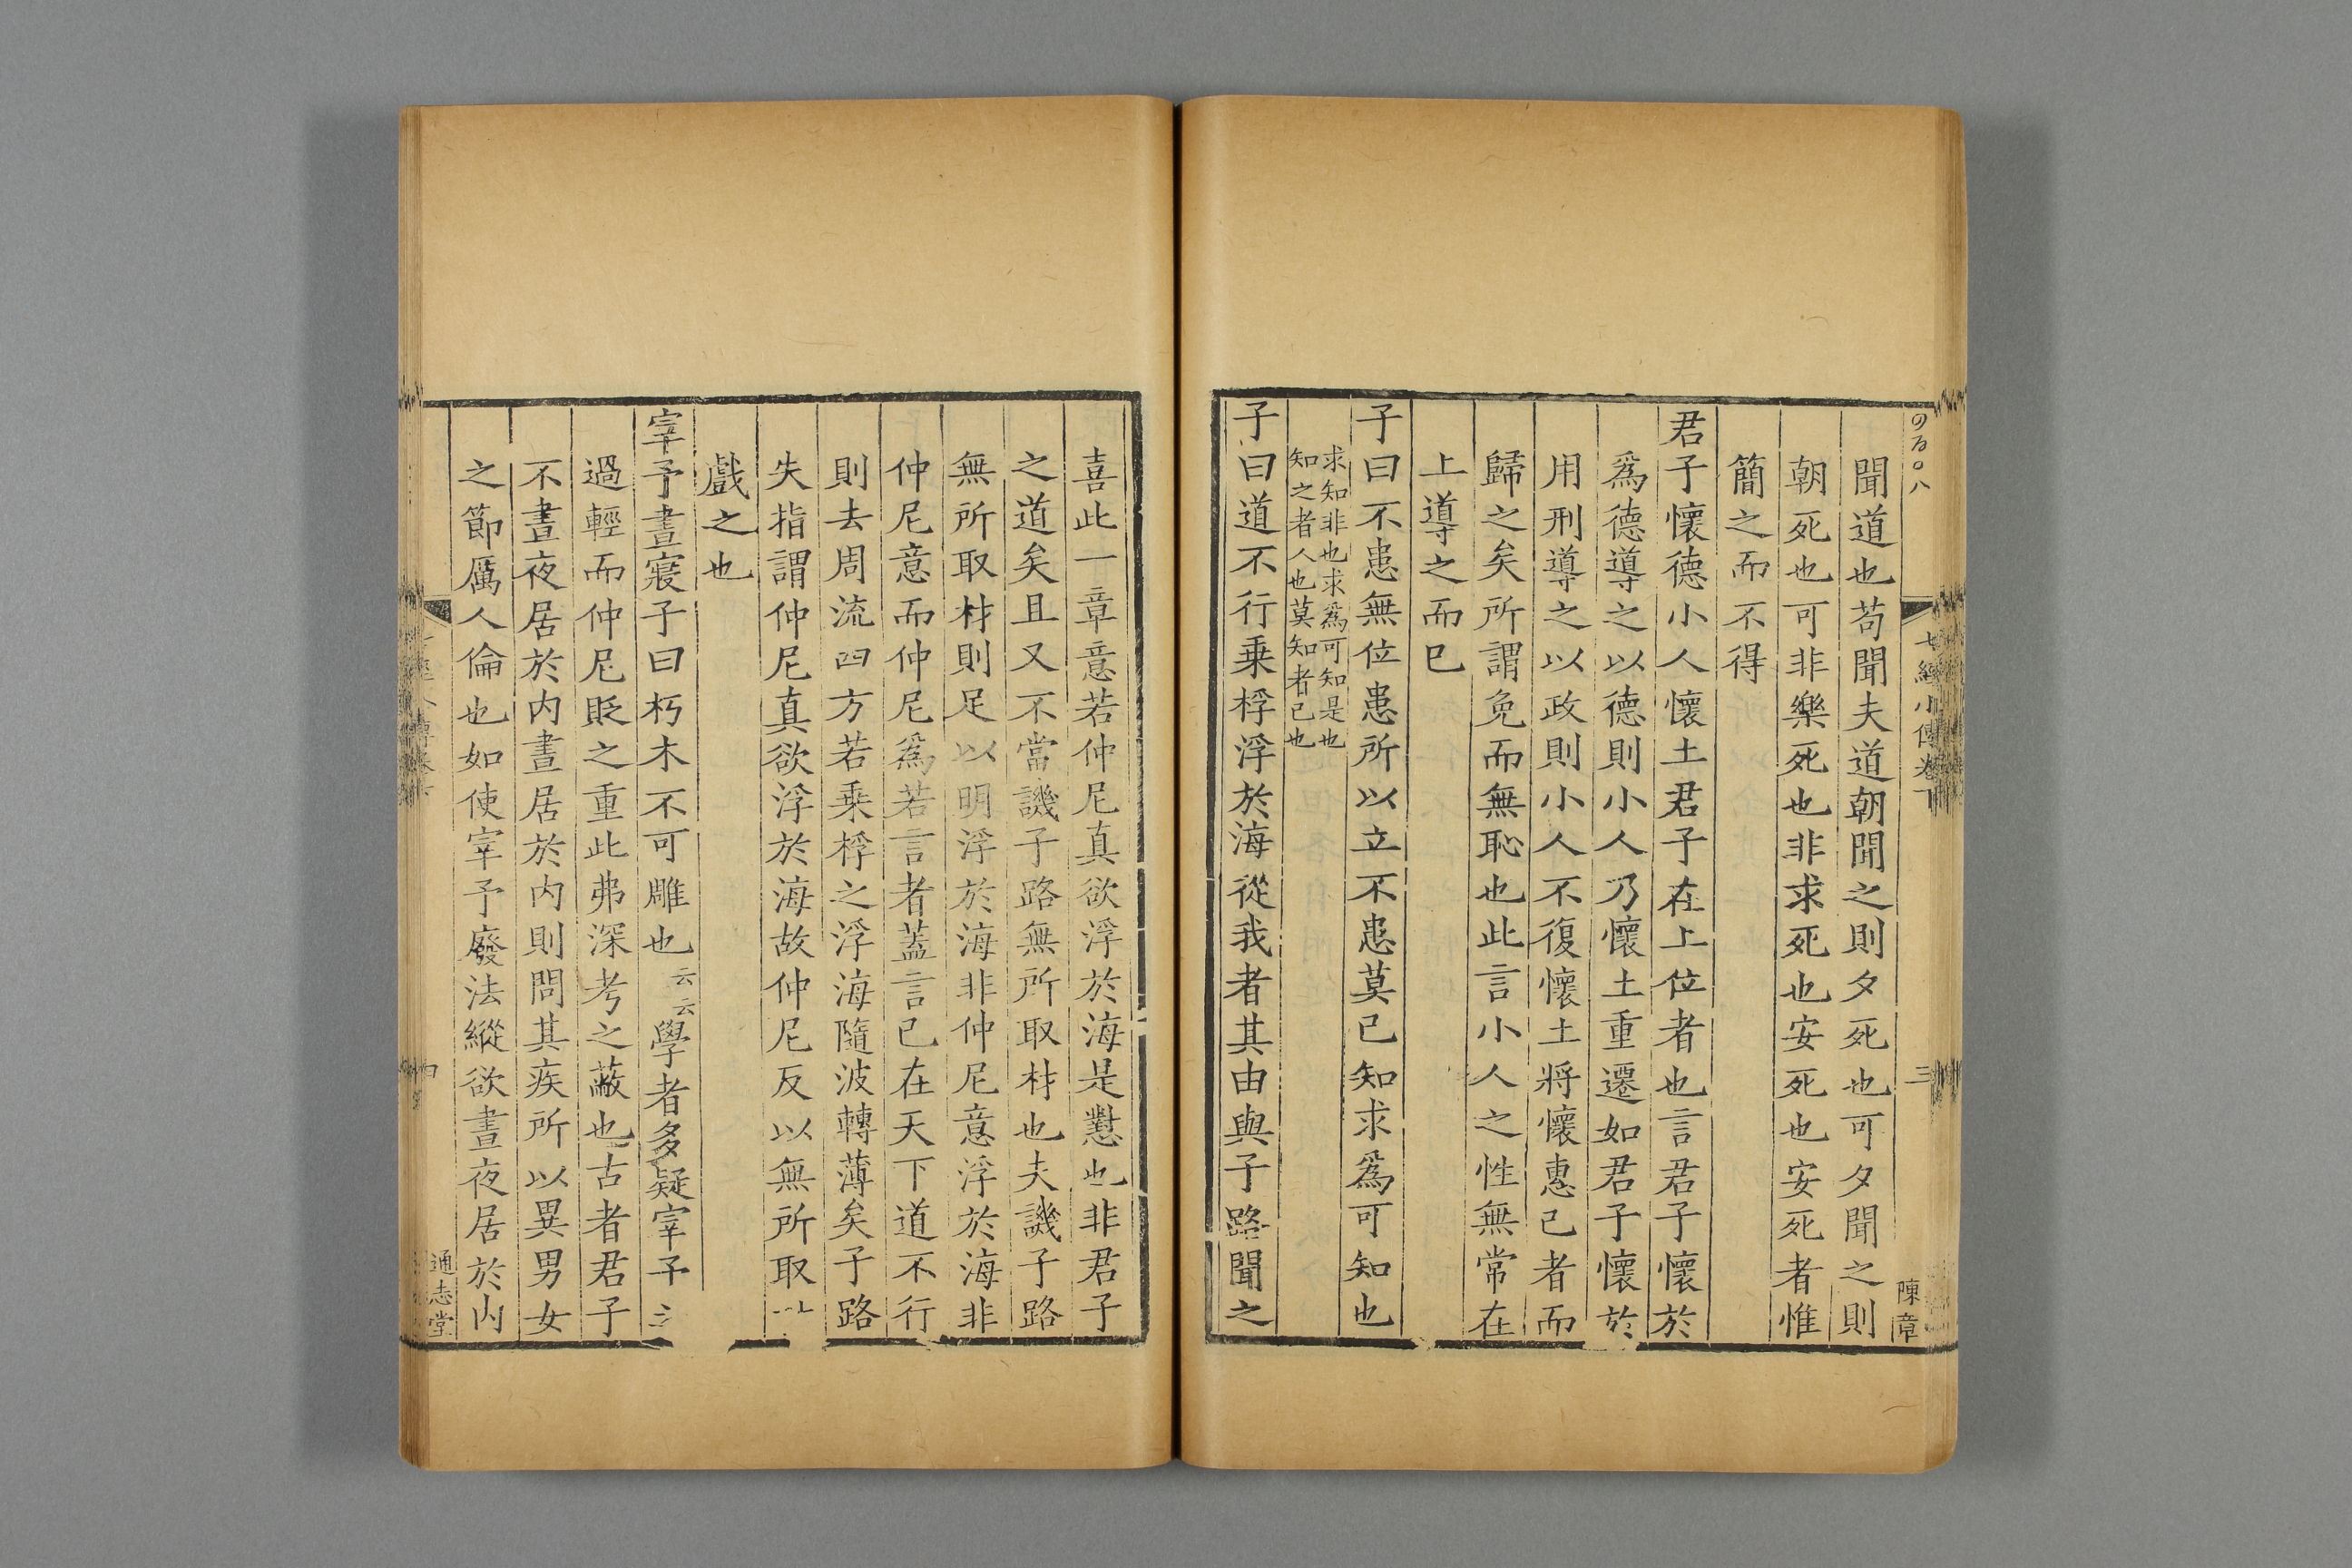 七經小傳卷下
三
陳章
聞道也苟聞夫道朝聞之則夕死也可夕聞之則
朝死也可非樂死也非求死也安死也安死者惟
簡之而不得
君子懷德小人懷土君子在上位者也言君子懷於
爲德導之以德則小人乃懷土重遷如君子懷於
用刑導之以政則小人不復懷土將懷惠己者而
歸之矣所謂免而無恥也此言小人之性無常在
上導之而已
子曰不患無位患所以立不患莫己知求爲可知也
求知非也求爲可知是也
知之者人也莫知者己也
子曰道不行乗桴浮於海從我者其由與子路聞之
喜此一章意若仲尼真欲浮於海是懟也非君子
之道矣且又不當譏子路無所取材也夫譏子路
無所取材則足以明浮於海非仲尼意浮於海非
仲尼意而仲尼爲若言者蓋言已在天下道不行
則去周流四方若乗桴之浮海隨波轉薄矣子路
失指謂仲尼真欲浮於海故仲尼反以無所取
戲之也
宰予晝寢子曰朽木不可雕也云云學者多疑宰予
過輕而仲尼貶之重此弗深考之蔽也古者君子
不晝夜居於内晝居於内則問其疾所以異男女
之節厲人倫也如使宰予廢法縱欲晝夜居於内
通志堂